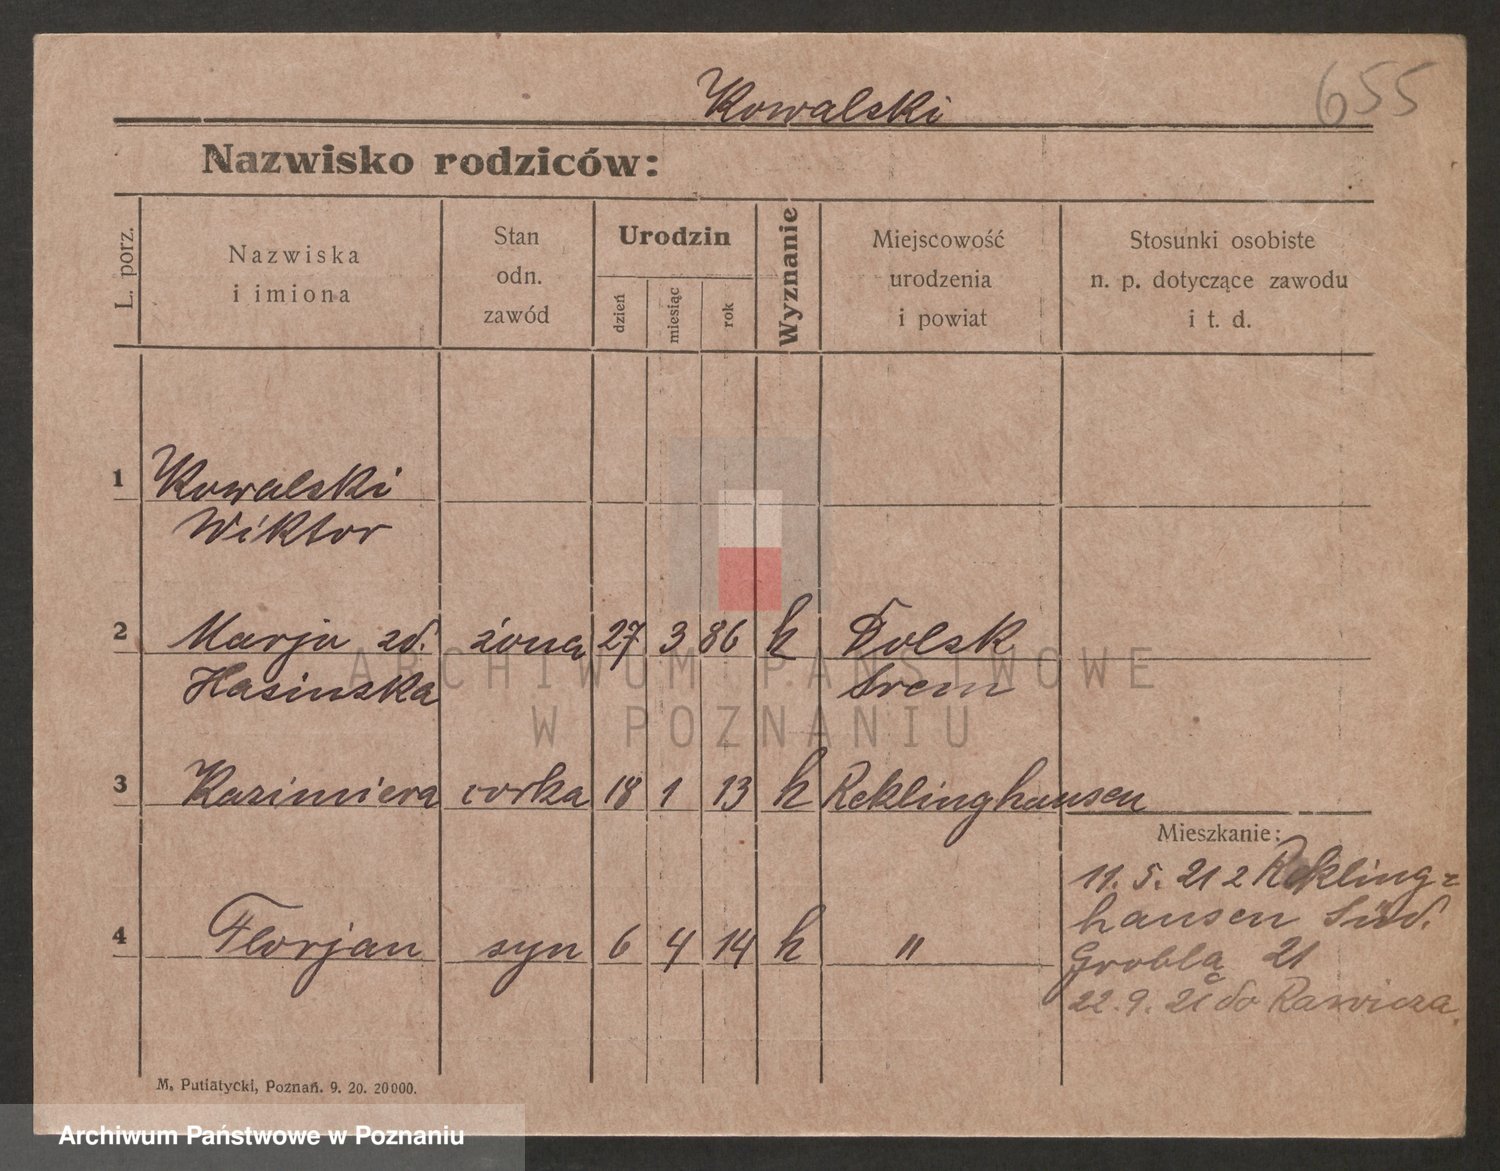 Kowalski
655
Nazwisko rodziców:
L. porz.
Nazwiska
i imiona
Stan
odn.
zawód
Urodzin
dzień
miesiąc
rok
Wyznanie
Miejscowość
urodzenia
i powiat
Stosunki osobiste
n. p. dotyczące zawodu
i t. d.
1 Kowalski
Wiktor
2 Marja zd. żona 27 3 86 k Dolsk
Hasinska Srem
3 Kazimiera corka 18 1 13 k Reklinghausen
Mieszkanie:
11. 5. 21 z Rekling=
hausen Süd.
4 Florjan syn 6 4 14 k "
Grobla 21
22. 9. 21 do Rawicza.
M. Putiatycki, Poznań. 9. 20. 20000.
ARCHIWUM PAŃSTWOWE
W POZNANIU
Archiwum Państwowe w Poznaniu